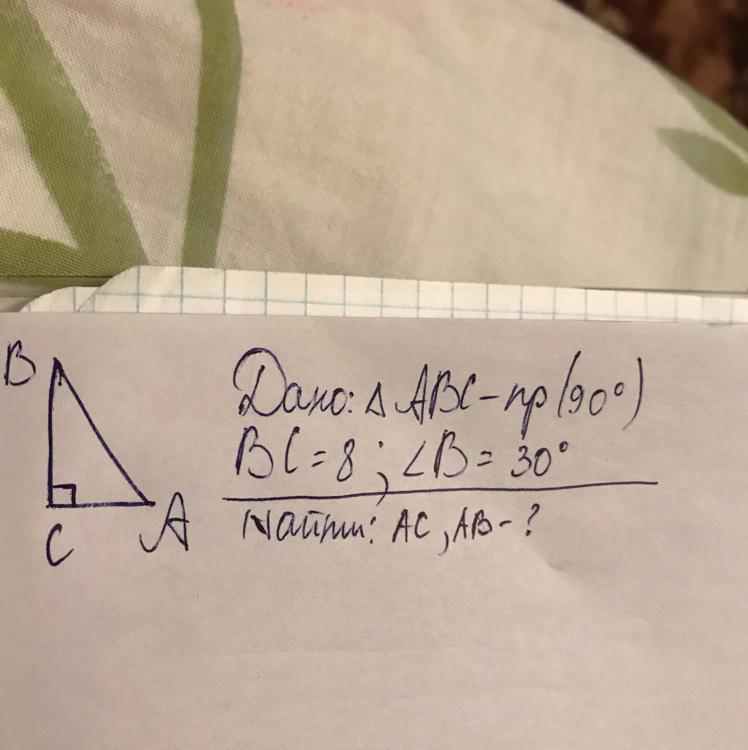 B
Дано: △ ABC - пр (90°)
BC = 8 ; ∠B = 30°
C A
Найти: AC, AB - ?